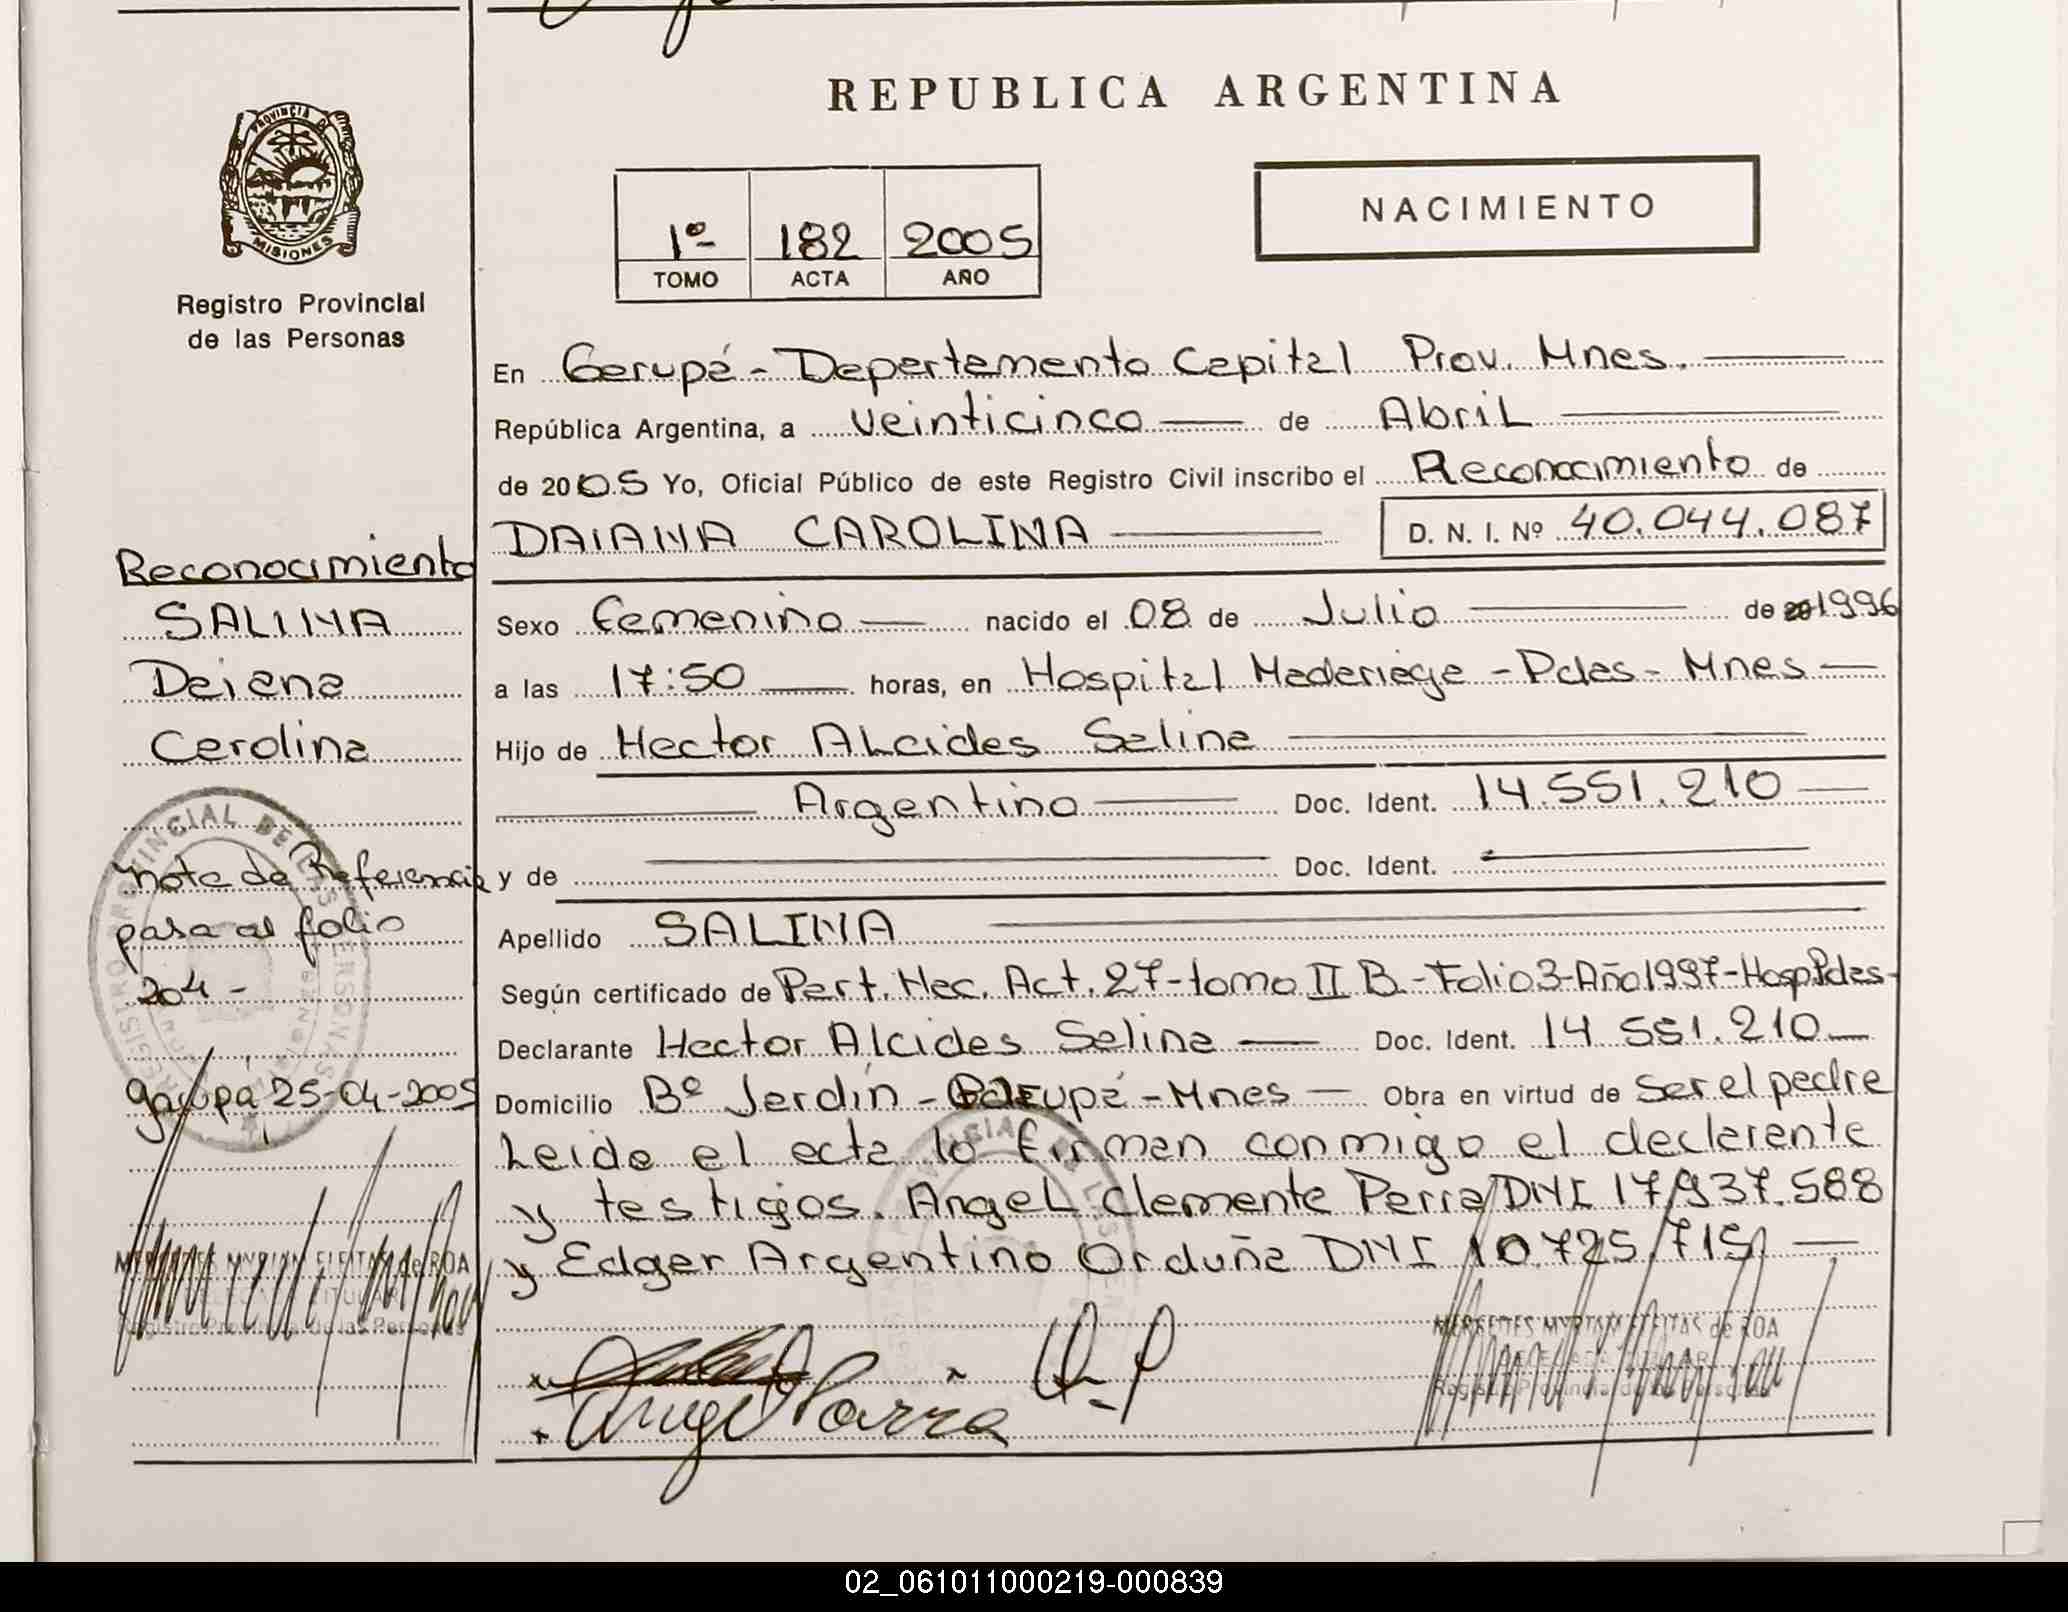 REPUBLICA ARGENTINA
PROVINCIA DE
MISIONES
Registro Provincial
de las Personas
1º 182 2005
TOMO ACTA AÑO
NACIMIENTO
En Garupá - Departamento Capital Prov. Mnes.
República Argentina, a veinticinco de Abril
de 2005 Yo, Oficial Público de este Registro Civil inscribo el Reconocimiento de
DAIANA CAROLINA D. N. I. Nº 40.044.087
Sexo Femenino nacido el 08 de Julio de 1996
a las 17:50 horas, en Hospital Madariaga - Pdas - Mnes
Hijo de Hector Alcides Salina
Argentino Doc. Ident. 14.551.210
y de Doc. Ident.
Apellido SALINA
Según certificado de Part. Nac. Act. 27 - tomo II B - Folio 3 - Año 1997 - Hosp Pdas -
Declarante Hector Alcides Salina Doc. Ident. 14 551.210
Domicilio Bº Jardín - Garupá - Mnes Obra en virtud de Ser el padre
Leida el acta lo firman conmigo el declarante
y testigos. Angel Clemente Parra DNI 17.937.588
y Edgar Argentino Orduña DNI 10.725.715
Angel Parra
MERCEDES MYRIAM FLEITAS de ROA
DELEGADA TITULAR
Registro Provincial de las Personas
Reconocimiento
SALINA
Daiana
Carolina
Nota de Referencia
pasa al folio
204 -
Garupá 25-04-2005
MERCEDES MYRIAM FLEITAS de ROA
DELEGADA TITULAR
Registro Provincial de las Personas
REGISTRO PROVINCIAL DE LAS PERSONAS
02_061011000219-000839